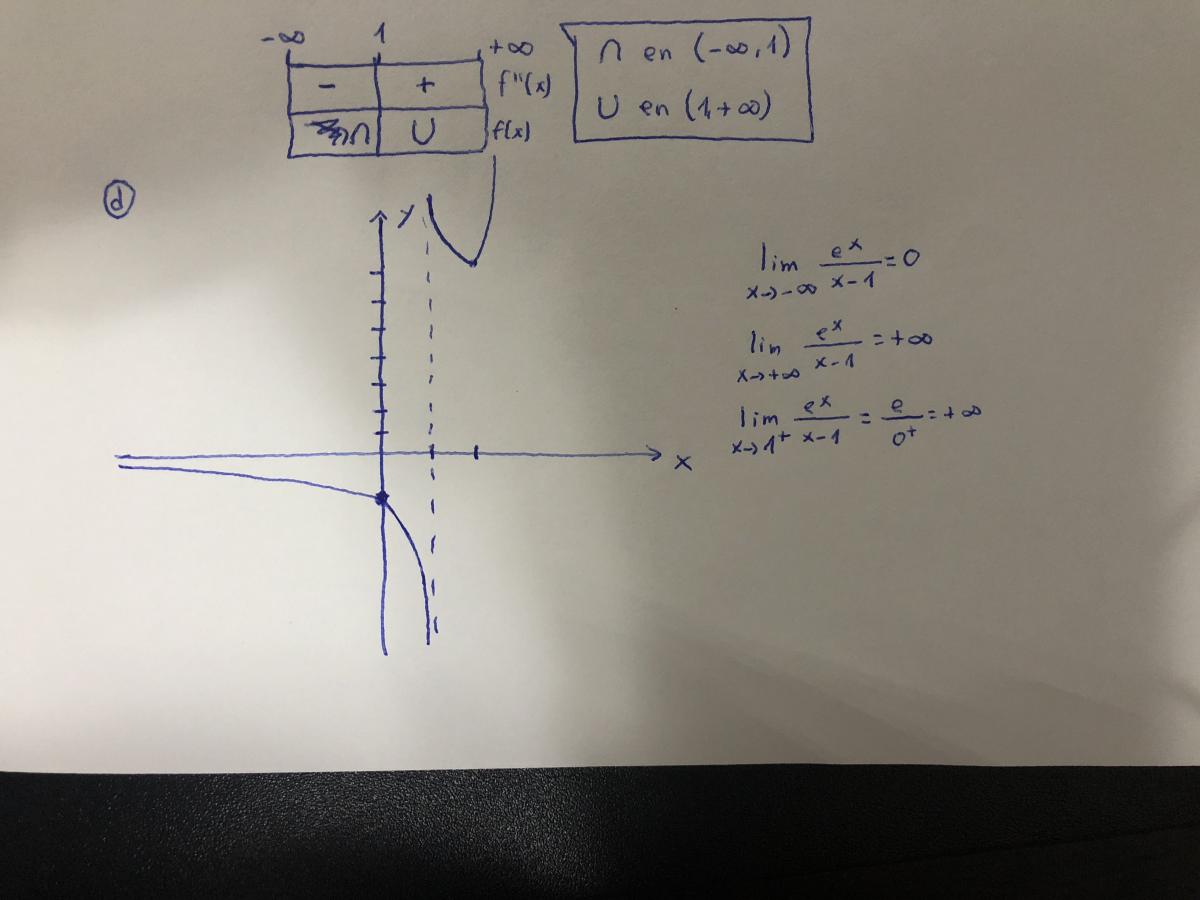 -∞ 1 +∞
- + f''(x)
∩ ∪ f(x)
∩ en (-∞, 1)
∪ en (1, +∞)
d
y
x
lim x→-∞ e^x/(x-1) = 0
lim x→+∞ e^x/(x-1) = +∞
lim x→1⁺ e^x/(x-1) = e/0⁺ = +∞